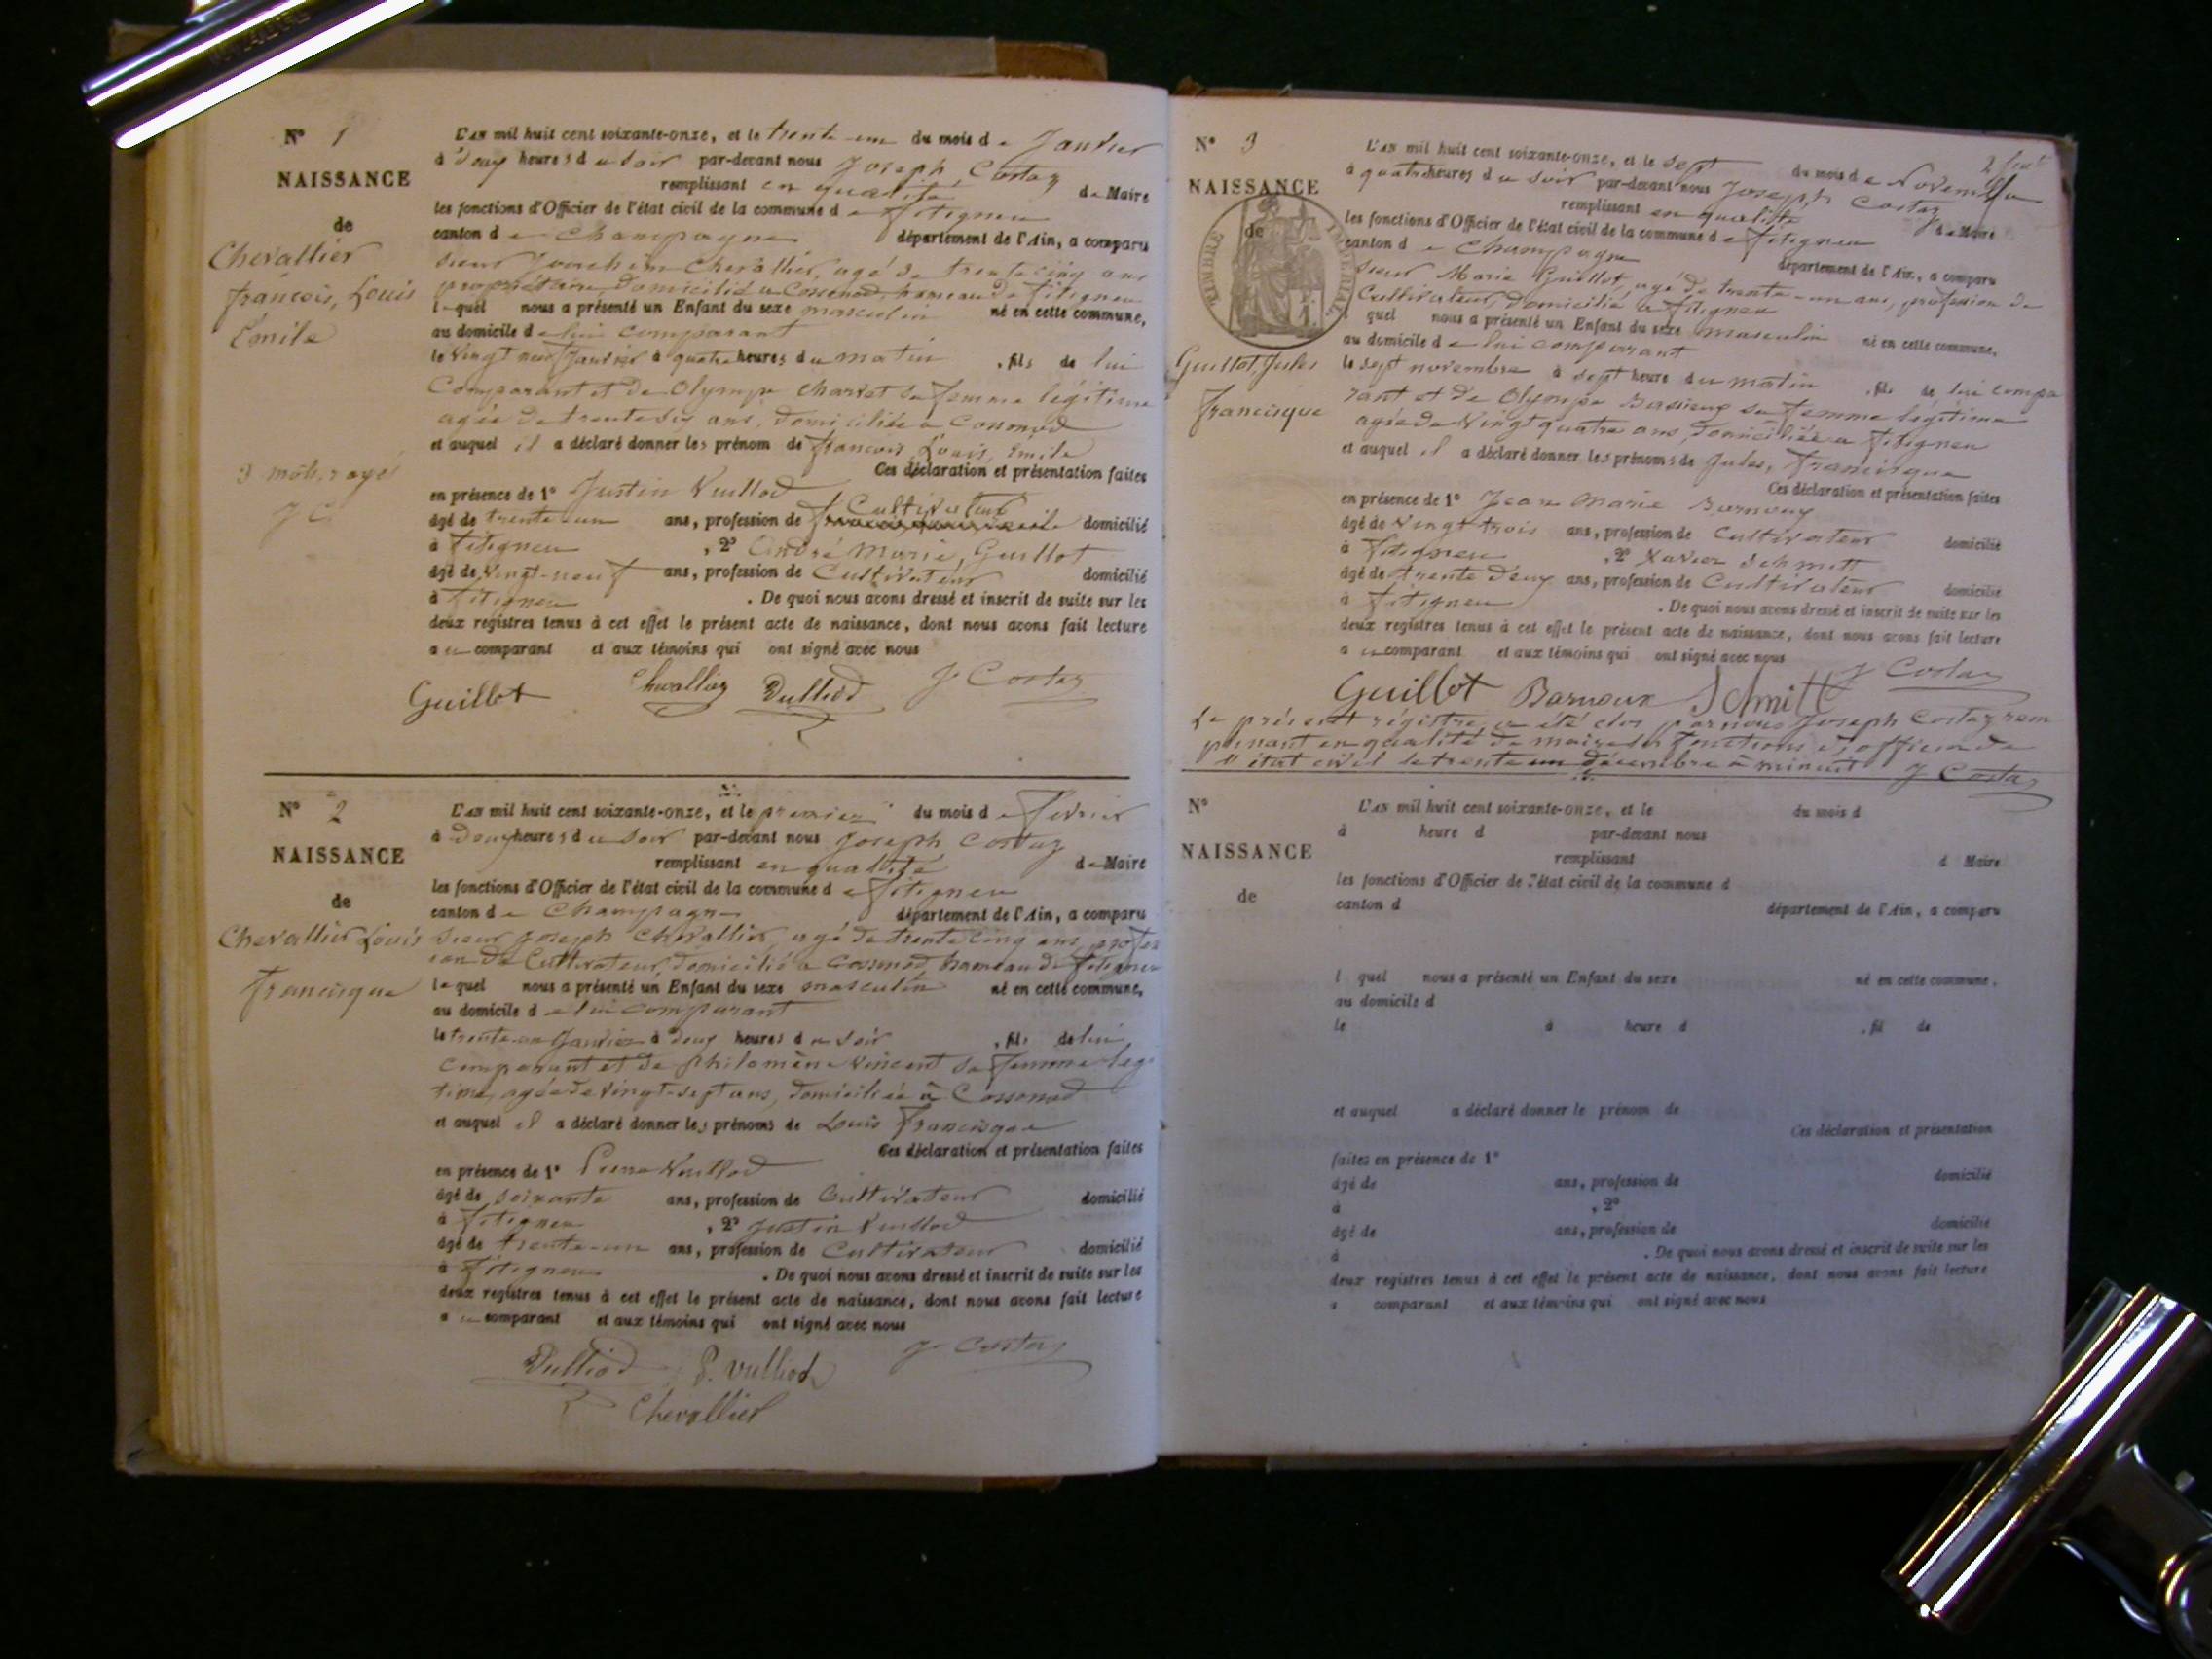 N° 1
NAISSANCE
de
Chevallier
françois, Louis
Emile
3 mots rayé
J C
L'AN mil huit cent soixante-onze, et le trente-un du mois de Janvier
à deux heures du soir par-devant nous Joseph Costaz
remplissant en qualité de Maire
les fonctions d'Officier de l'état civil de la commune de fitigneu
canton de Champagne département de l'Ain, a comparu
sieur Joachim Chevallier, agé de trente cinq ans
propriétaire, domicilié a Cossonod, hameau de fitigneu
lequel nous a présenté un Enfant du sexe masculin né en cette commune,
au domicile de lui comparant
le vingt neuf Janvier à quatre heures du matin, fils de lui
Comparant et de Olympe Charvet sa femme légitime
agée de trente six ans, domiciliée a Cossonod
et auquel il a déclaré donner les prénom de françois, Louis, Emile
Ces déclaration et présentation faites
en présence de 1° Justin Vulliod
âgé de trente-un ans, profession de Cultivateur domicilié
à fitigneu, 2° André Marie, Guillot
âgé de vingt-neuf ans, profession de Cultivateur domicilié
à fitigneu. De quoi nous avons dressé et inscrit de suite sur les
deux registres tenus à cet effet le présent acte de naissance, dont nous avons fait lecture
au comparant et aux témoins qui ont signé avec nous
Guillot Chevallier Vulliod J Costaz
N° 2
NAISSANCE
de
Chevallier Louis
francisque
L'AN mil huit cent soixante-onze, et le premier du mois de fevrier
à deux heures du soir par-devant nous Joseph Costaz
remplissant en qualité de Maire
les fonctions d'Officier de l'état civil de la commune de fitigneu
canton de Champagne département de l'Ain, a comparu
sieur Joseph Chevallier, agé de trente cinq ans, profes
ion de Cultivateur, domicilié a Cossonod, hameau de fitigneu
lequel nous a présenté un Enfant du sexe masculin né en cette commune,
au domicile de lui comparant
le trente-un Janvier à deux heures du soir, fils de lui
comparant et de philomène Vincent sa femme legi
time, agée de vingt-sept ans, domiciliée à Cossonod
et auquel il a déclaré donner les prénoms de Louis francisque
Ces déclaration et présentation faites
en présence de 1° Pierre Vulliod
âgé de soixante ans, profession de Cultivateur domicilié
à fitigneu, 2° Justin Vulliod
âgé de trente-un ans, profession de Cultivateur domicilié
à fitigneu. De quoi nous avons dressé et inscrit de suite sur les
deux registres tenus à cet effet le présent acte de naissance, dont nous avons fait lecture
au comparant et aux témoins qui ont signé avec nous
Vulliod P. Vulliod J Costaz
Chevallier
N° 3
NAISSANCE
de
TIMBRE IMPERIAL
Guillot Jules
francisque
L'AN mil huit cent soixante-onze, et le sept du mois de Novembre
à quatre heures du soir par-devant nous Joseph Costaz
remplissant en qualité de Maire
les fonctions d'Officier de l'état civil de la commune de fitigneu
canton de Champagne département de l'Ain, a comparu
sieur Marie Guillot, agé de trente-un ans, profession de
Cultivateur, domicilié a fitigneu
l quel nous a présenté un Enfant du sexe masculin né en cette commune,
au domicile de lui comparant
le sept novembre à sept heure du matin, fils de lui compa
rant et de Olympe sa femme legitime
agée de vingt quatre ans, domiciliée a fitigneu
et auquel il a déclaré donner les prénoms de Jules, francisque
Ces déclaration et présentation faites
en présence de 1° Jean Marie Barnoux
âgé de vingt trois ans, profession de Cultivateur domicilié
à fitigneu, 2° Xavier Schmitt
âgé de trente deux ans, profession de Cultivateur domicilié
à fitigneu. De quoi nous avons dressé et inscrit de suite sur les
deux registres tenus à cet effet le présent acte de naissance, dont nous avons fait lecture
au comparant et aux témoins qui ont signé avec nous
Guillot Barnoux Schmitt J Costaz
Le présent régistre a été clos par nous Joseph Costaz rem
plissant en qualité de maire les fonctions d'officier de
l'état civil le trente un décembre à minuit J Costaz
N°
NAISSANCE
de
L'AN mil huit cent soixante-onze, et le du mois d
à heure d par-devant nous
remplissant d Maire
les fonctions d'Officier de l'état civil de la commune d
canton d département de l'Ain, a comparu
l quel nous a présenté un Enfant du sexe né en cette commune,
au domicile d
le à heure d, fil de
et auquel a déclaré donner le prénom de
Ces déclaration et présentation
faites en présence de 1°
âgé de ans, profession de domicilié
à, 2°
âgé de ans, profession de domicilié
à. De quoi nous avons dressé et inscrit de suite sur les
deux registres tenus à cet effet le présent acte de naissance, dont nous avons fait lecture
a comparant et aux témoins qui ont signé avec nous